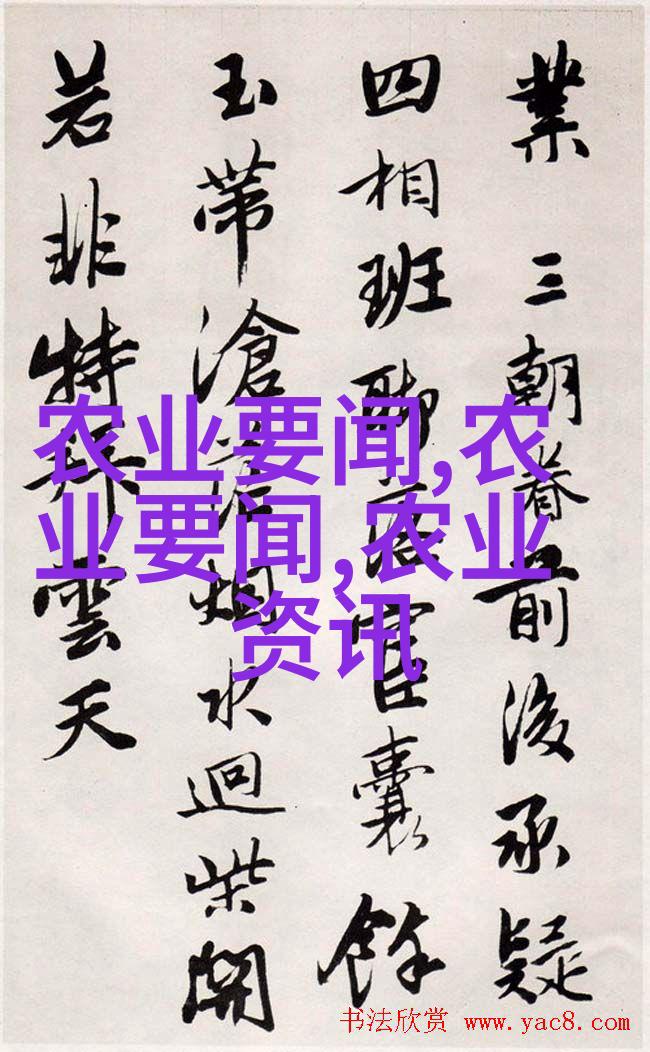 業 三朝眷前後承疑
四相班聯宦囊餘
玉帶滄烟水迴柴開
若非特拜雲天
农业要闻,农
业要闻,农业
资讯
书法欣赏 www.yac8.com